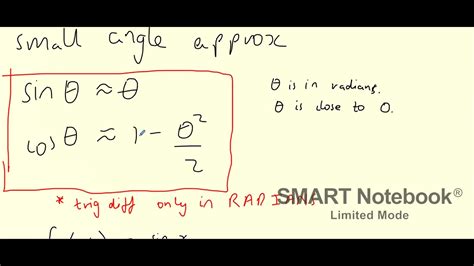 small angle approx
sin θ ≈ θ
θ is in radians.
θ is close to 0.
cos θ ≈ 1 - θ²/2
* trig diff only in RADIANS
SMART Notebook®
Limited Mode